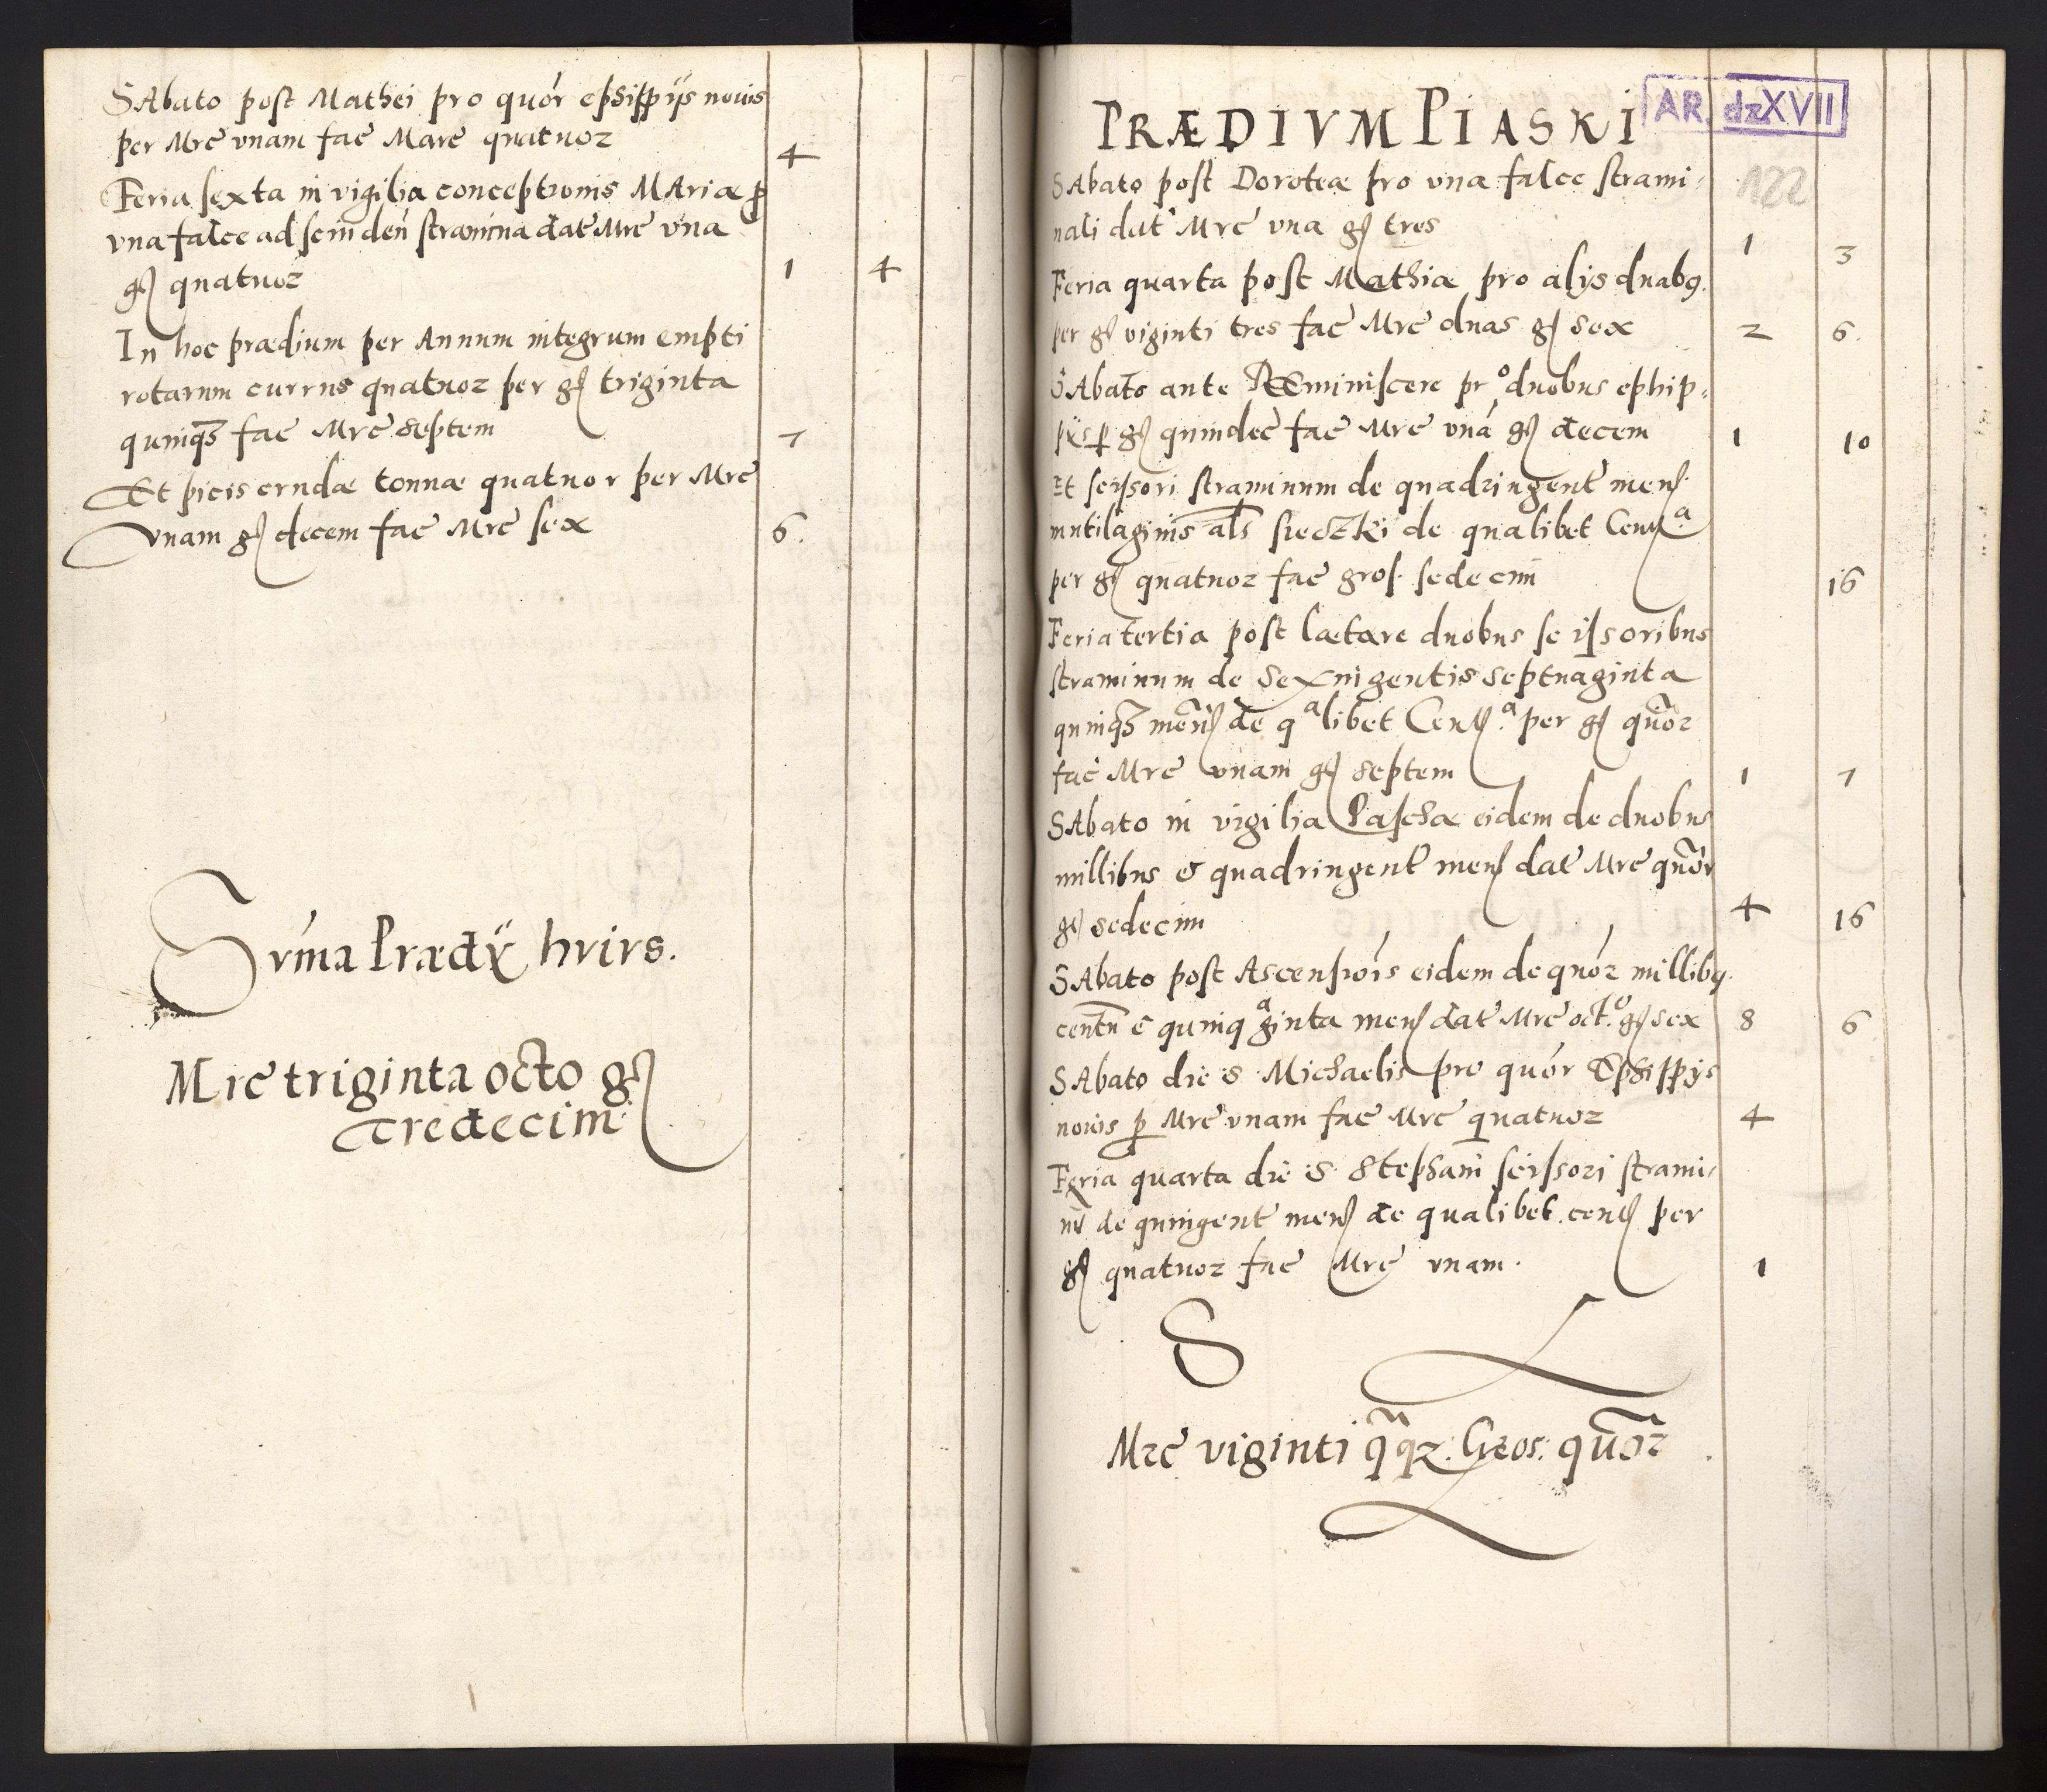 SAbato post Mathei pro quor ephippijs nouis
per Mrc vnam fac Marc quatuor 4
Feria sexta in vigilia conceptionis MAriæ p
vna falce ad scinden stramina dat Mrc vna
gs quatuor 1 4
In hoc prædium per Annum integrum empti
rotarum currus quatuor per gs triginta
quinqz fac Mrc septem 7
Et picis crudæ tonnæ quatuor per Mrc
vnam gs decem fac Mrc sex 6.
Suma Prædij hvivs.
Mrc triginta octo gs
tredecim.
PRÆDIVM PIASKI
AR. dzXVII
122
SAbato post Doroteæ pro vna falce strami-
nali dat Mrc vna gs tres 1 3
Feria quarta post Mathiæ pro alijs duabq.
per gs viginti tres fac Mrc duas gs sex 2 6.
SAbato ante REEminiscere pro duobus ephip-
pijs p gs quindec fac Mrc vna gs decem 1 10
Et scissori straminum de quadringent mens.
mutilaginis als sieczki de qualibet Cents.a
per gs quatuor fac gros. sedecim 16
Feria tertia post lætare duobus scissoribus
straminum de sexingentis septuaginta
quinqz mens de qalibet Cents.a per gs quor
fac Mrc vnam gs septem 1 7
SAbato in vigilia Paschæ eidem de duobus
millibus & quadringent mens dat Mrc quor
gs sedecim 4 16
SAbato post Ascensiois eidem de quor millibq.
centu & quinqaginta mens dat Mrc octo. gs sex 8 6
SAbato die S. Michaelis pro quor Ephippijs
nouis p Mrc vnam fac Mrc quatuor 4
Feria quarta die S. Stephani scissori strami-
nu de quingent mens de qualibet cents per
gs quatuor fac Mrc vnam. 1
S
Mrc viginti qqz. Gros: quor